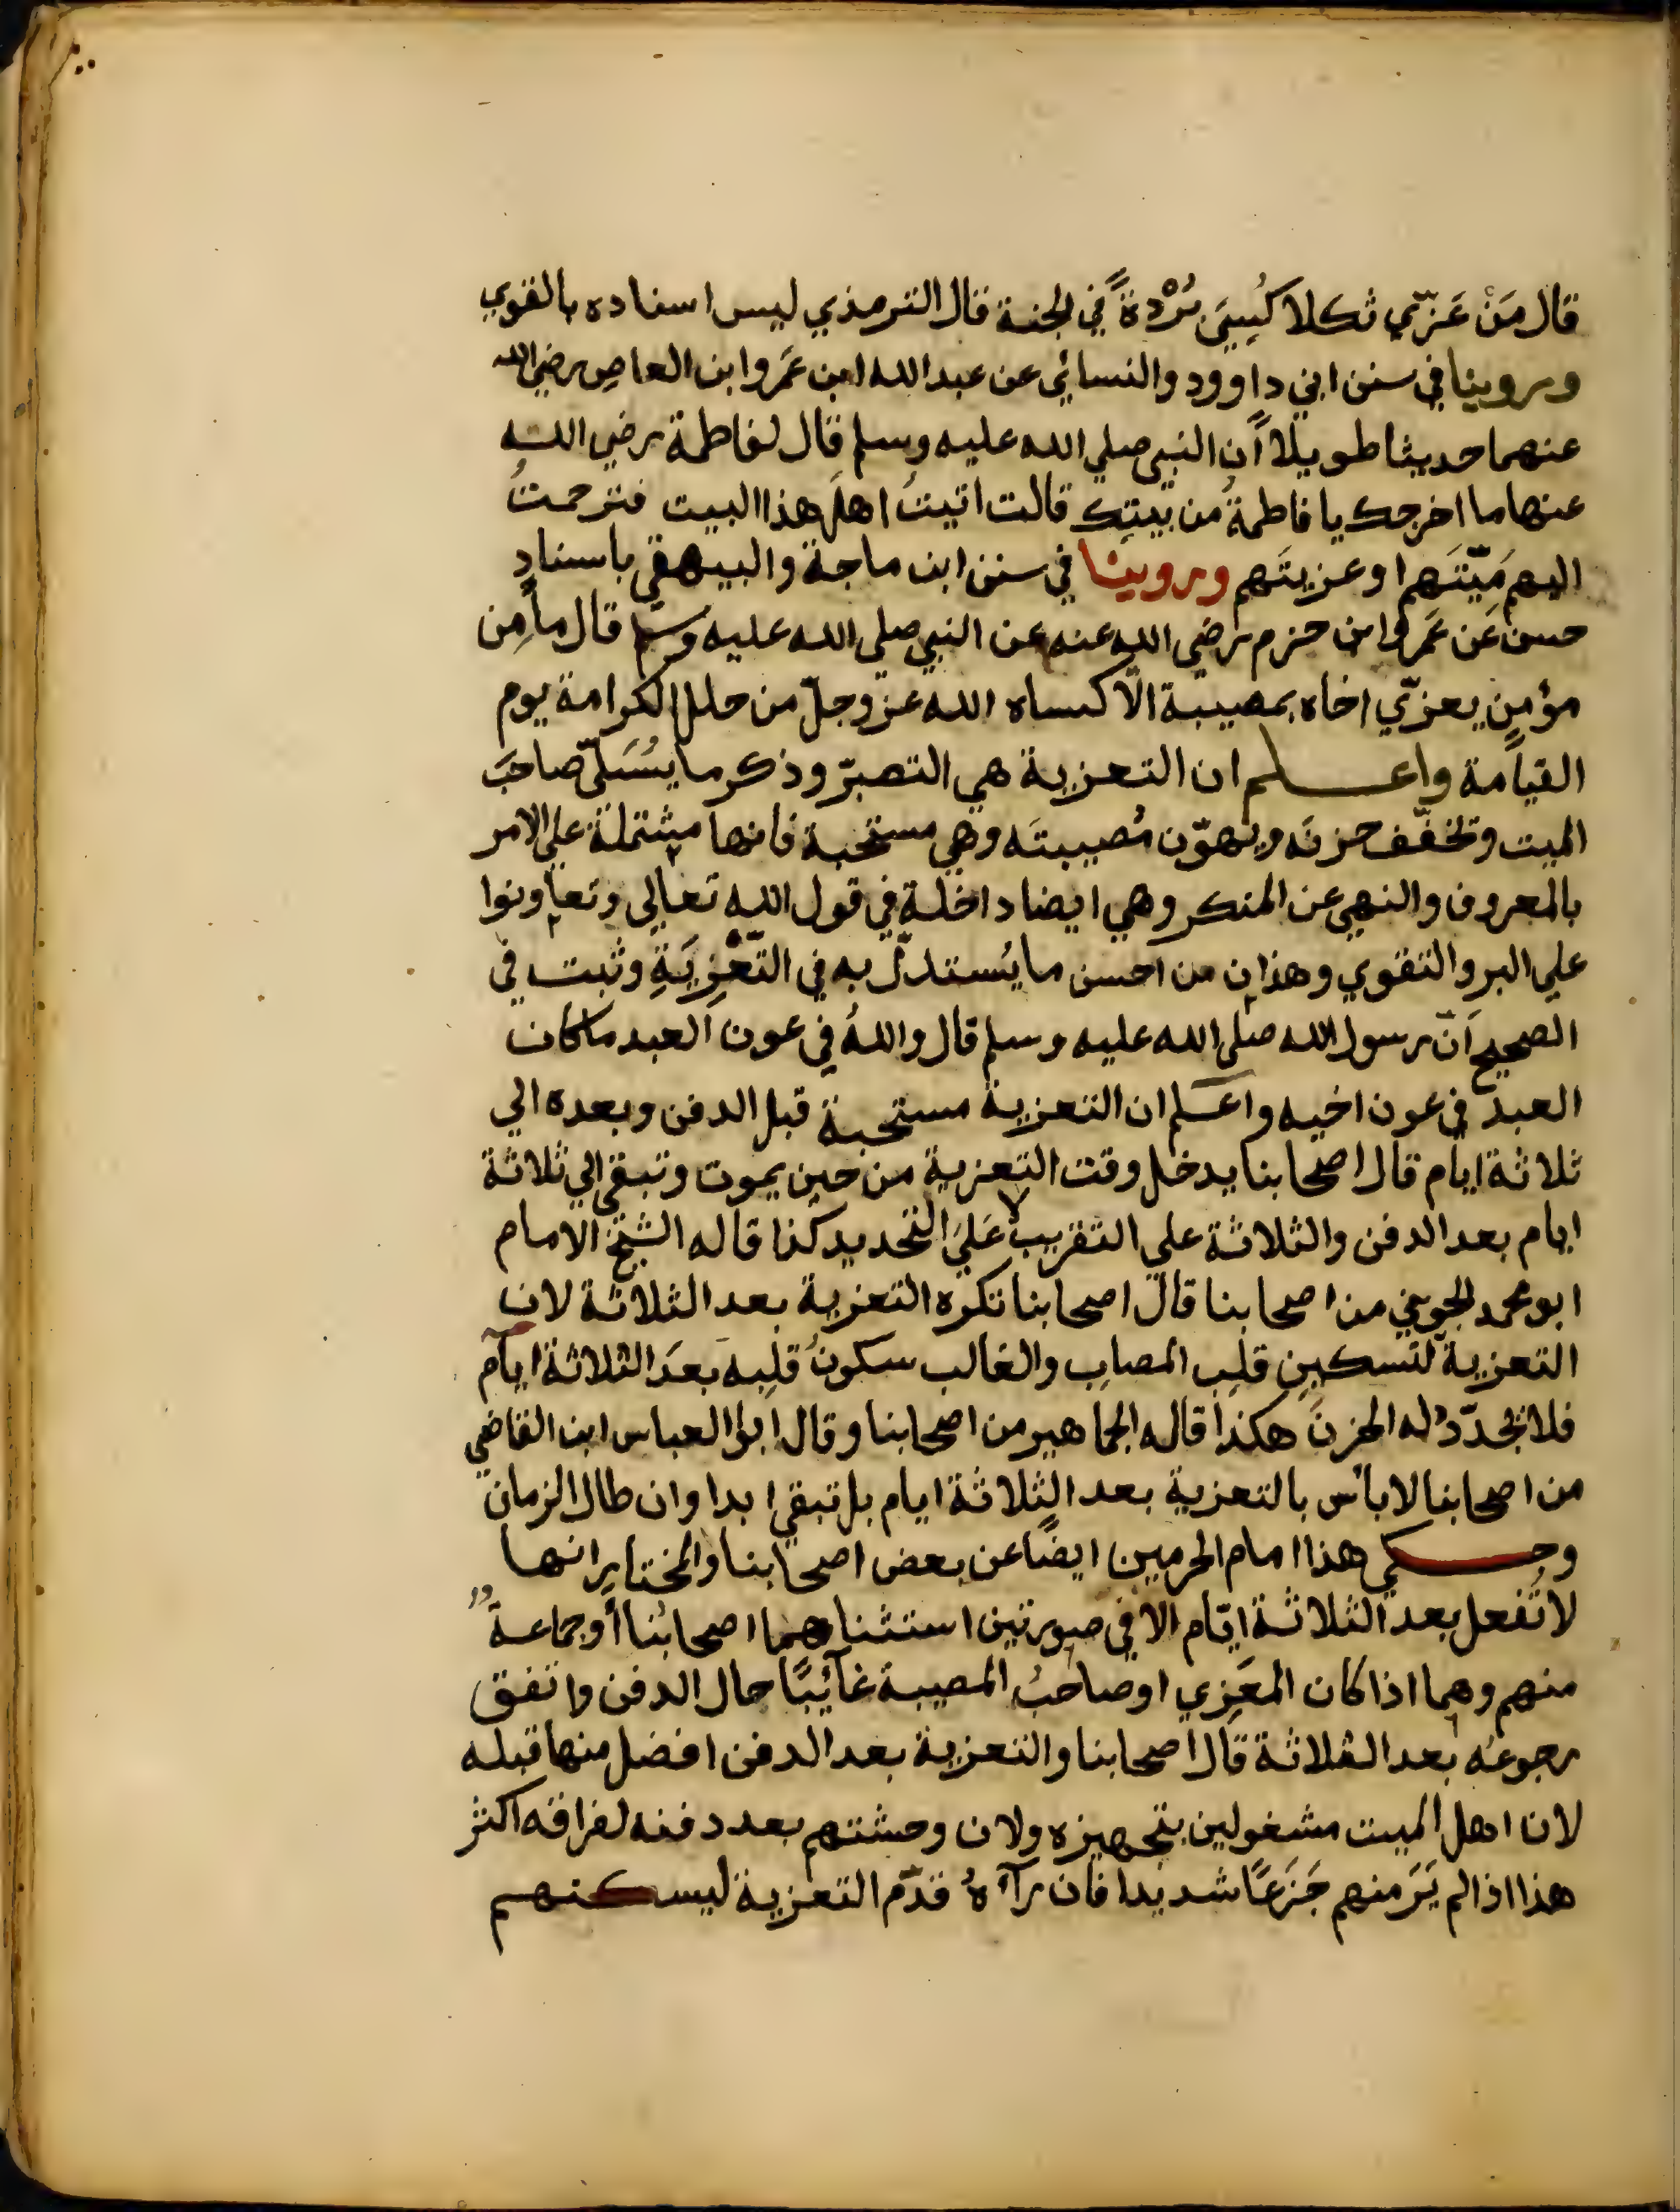 قال مَنْ عَزّي ثكلا كُسِيَ بُرْدةً في الجنة قال الترمذي ليس اسناده بالقوي
وروينا في سنن ابي داوود والنسائي عن عبد الله ابن عَمَروا بن العاصِ رضي الله
عنهما حديثا طويلا أن النبي صلي الله عليه وسلم قال لفاطمة رضي الله
عنها ما اخرجك يا فاطمةُ من بيتِك قالت اتيتُ اهلَ هذا البيت فترحمتُ
اليهم مَيّتَهم او عزيتَهم وروينا في سنن ابن ماجة والبيهقي باسنادٍ
حسن عَن عَمَروا بن حزم رضي الله عنه عن النبي صلي الله عليه وسلم قال ما مِن
مؤمنٍ يعزّي اخاه بمصيبة الّا كساه الله عز وجلّ من حلل الكرامة يوم
القيامة واعلم ان التعزية هي التصبرّ وذكر ما يُسَلّي صاحبَ
الميت وتخفّف حزنَه ويهوّن مُصيبتَه وهي مستحبة فانها مشتملة علي الامر
بالمعروف والنهي عن المنكر وهي ايضا داخلة في قول الله تعالي وتعاونوا
علي البر والتقوي وهذان من احسن ما يُستدلّ به في التّعْزِيَةِ وثبت في
الصحيح اَنّ رسول الله صلي الله عليه وسلم قال واللهُ في عون العبد ما كان
العبدُ في عون اخيه واعلم ان التعزية مستحبة قبل الدفن وبعده الي
ثلاثة ايام قال اصحابنا يدخل وقت التعزية من حين يموت وتبقي الي ثلاثة
ايام بعد الدفن والثلاثة علي التقريب لا عَلَي التحديد كذا قاله الشيخ الامام
ابو محمد الجويني من اصحابنا قال اصحابنا تكره التعزية بعد الثلاثة لان
التعزية لتسكينِ قلبِ المصابِ والغالب سكونُ قلبِه بعدَ الثلاثة ايام
فلا تجدّدُ له الحزنَ هكذا قاله الجماهير من اصحابنا وقال ابوا العباس ابن القاضي
من اصحابنا لا بأس بالتعزية بعد الثلاثة ايام بل تبقي ابدا وان طال الزمان
وحكي هذا امام الحرمين ايضًا عن بعض اصحابنا والمختار انها
لا تُفعل بعد الثلاثة ايّام الا في صورتين استثناهما اصحابُنا أو جماعةٌ
منهم وهما اذا كان المعَزِي او صاحبُ المصيبة غائبًا حال الدفن واتفق
رجوعُه بعد الثلاثة قال اصحابنا والتعزية بعد الدفن افضل منها قبله
لان اهل الميت مشغولين بتجهيزه ولان وحشتهم بعد دفنه لفراقه اكثر
هذا اذا لم يَرَ منهم جَزَعًا شديدا فان رآهُ قدّم التعزية ليسكنهم